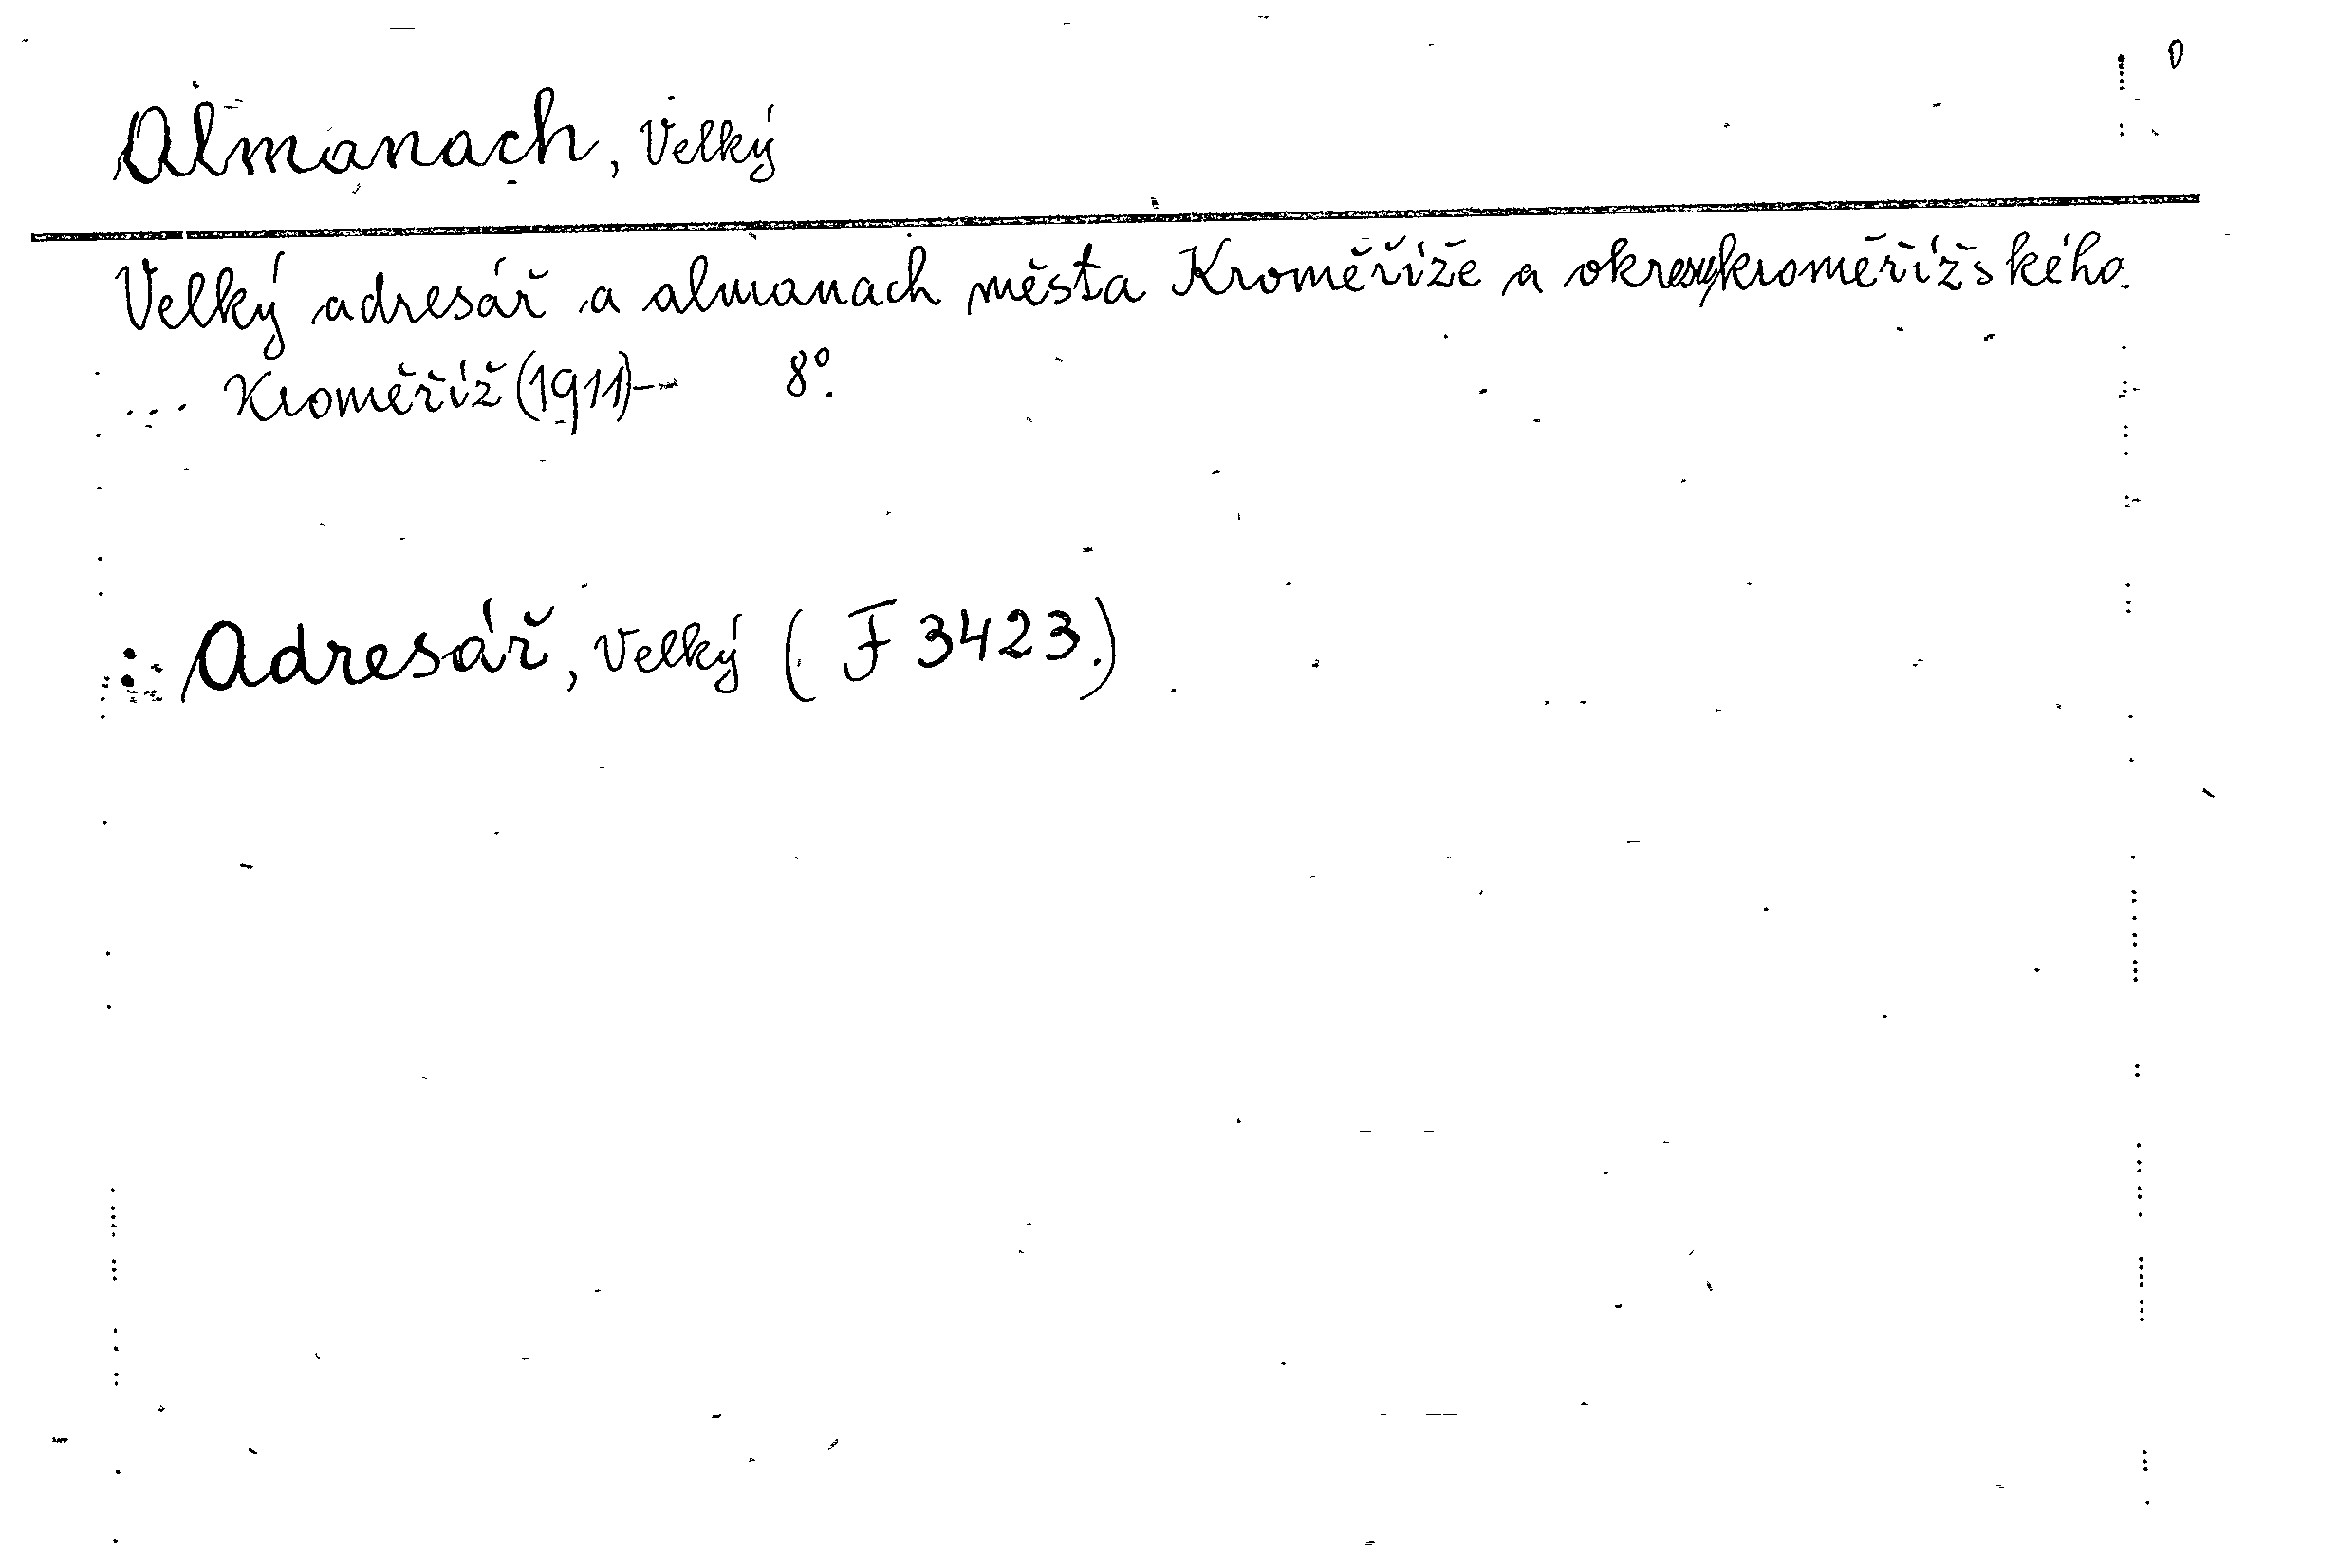 Almanach, Velký
Velký adresář a almanach města Kroměříže a okresu kroměřížského.
... Kroměříž (1911)-- 8º.
: Adresář, Velký (F 3423.)